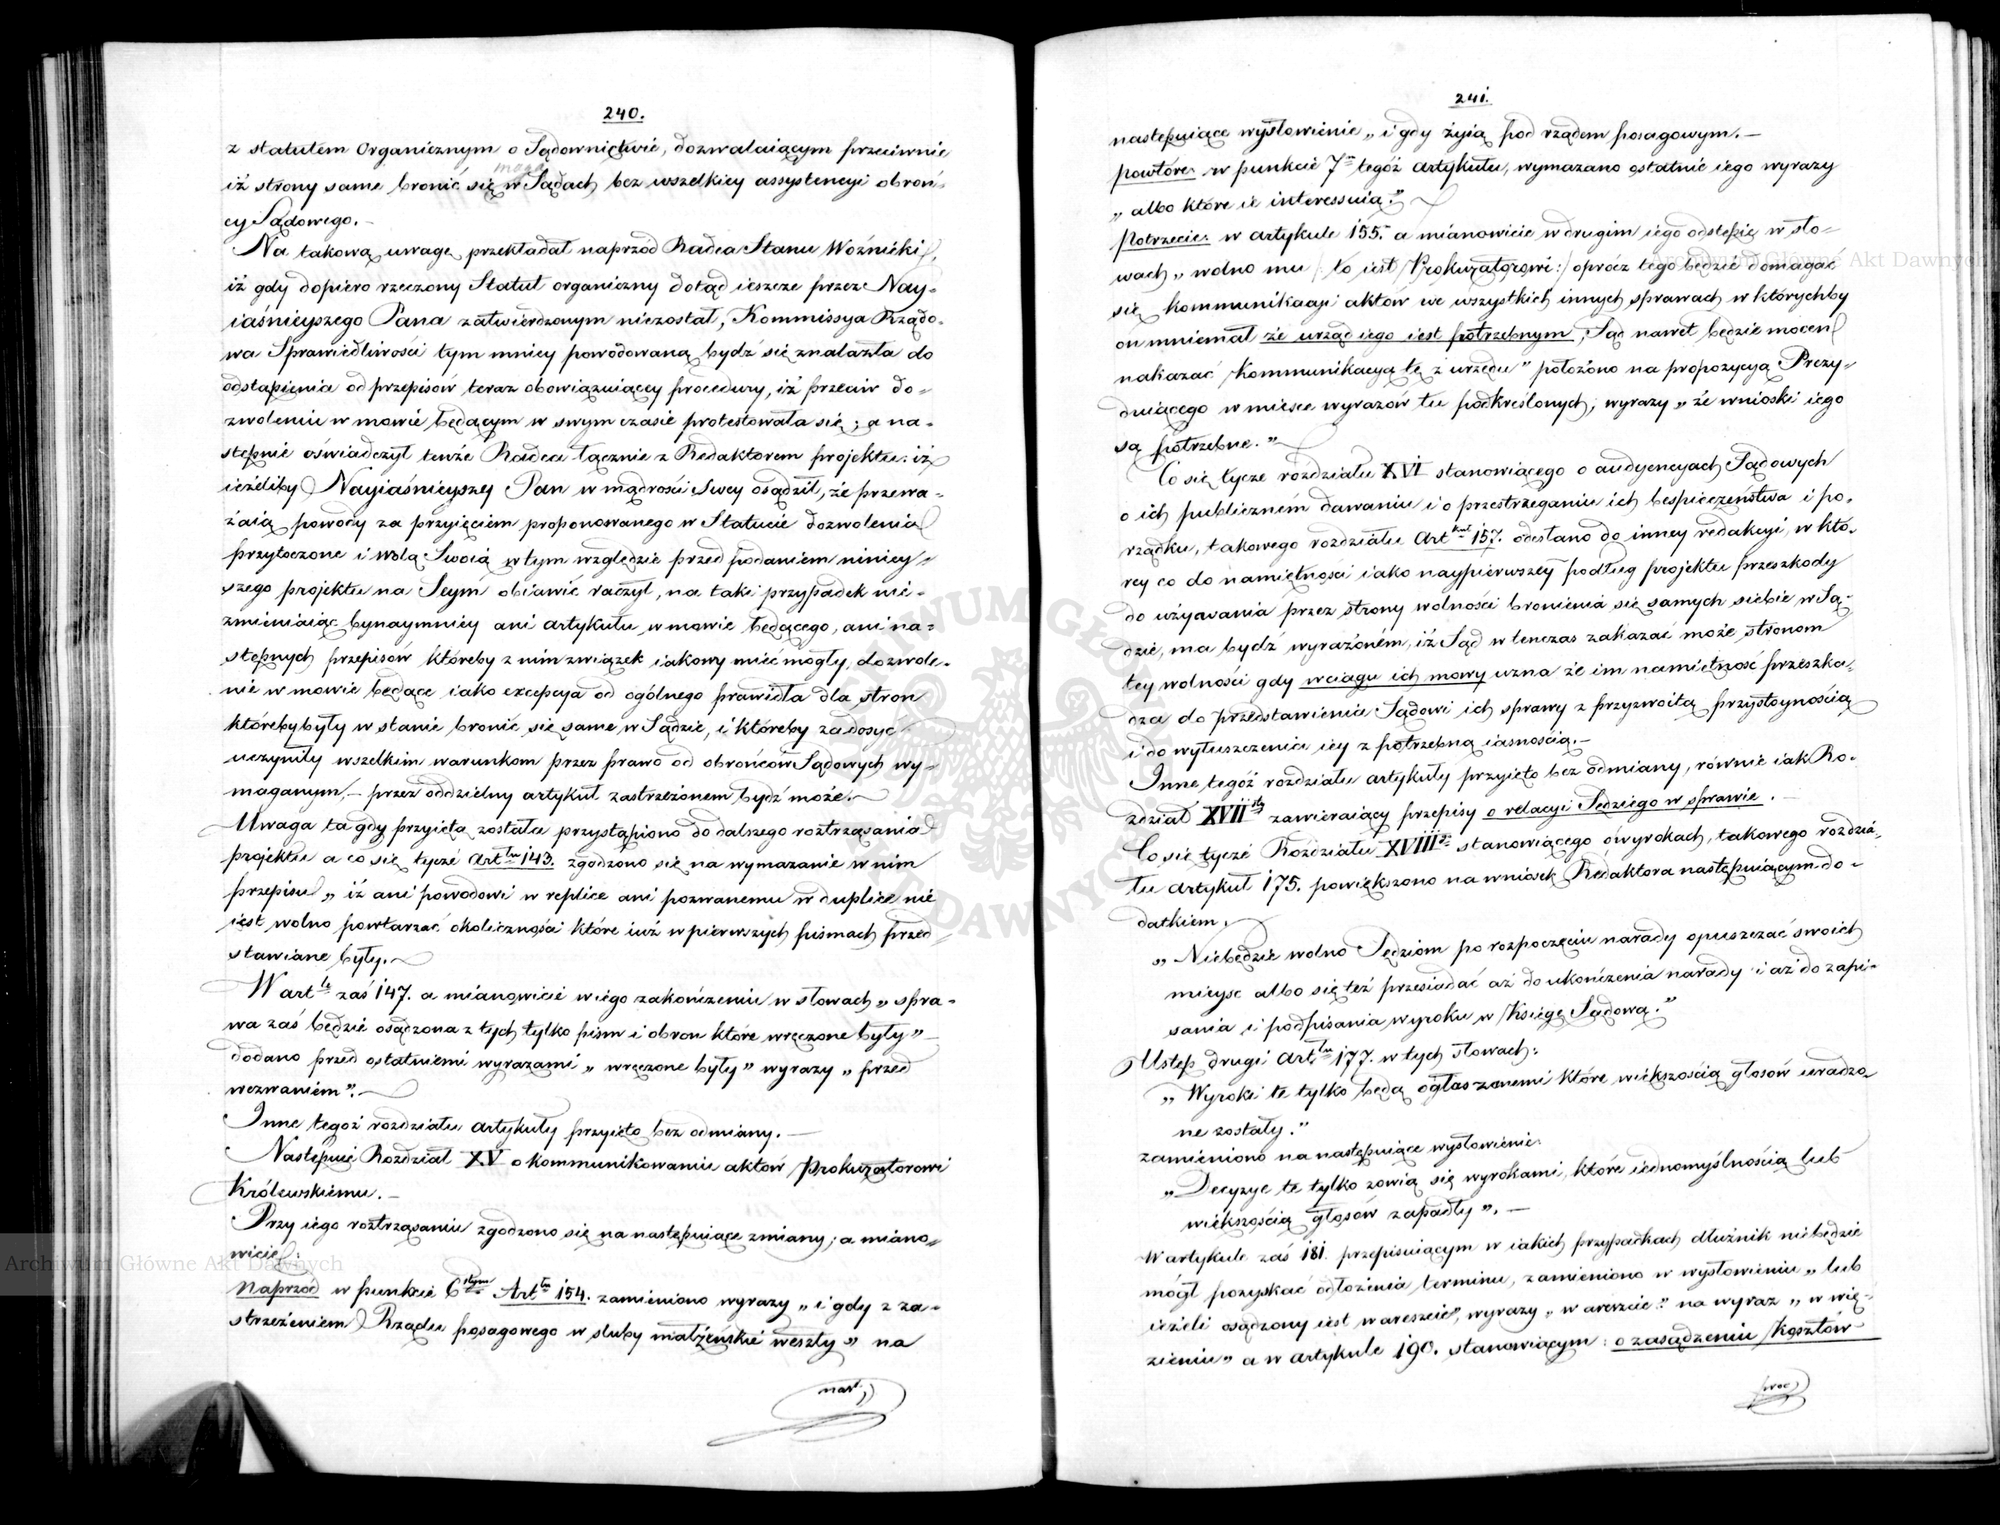 240.
z statutem Organicznym o Sądownictwie, dozwalaiącym przeciwnie
mogą
iż strony same bronić się w Sądach bez wszelkiey assystencyi obroń-
cy Sądowego. —
Na takową uwagę przekładał naprzód Radca Stanu Woźnicki,
iż gdy dopiero rzeczony Statut organiczny dotąd ieszcze przez Nay-
iaśnieyszego Pana zatwierdzonym niezostał, Kommissya Rządo-
wa Sprawiedliwości tym mniey powodowaną bydź się znalazła do
odstąpienia od przepisów teraz obowiązuiącey procedury, iż przeciw do-
zwoleniu w mowie będącym w swym czasie protestowała się; a na-
stępnie oświadczył tenże Radca łącznie z Redaktorem projektu: iż
ieżeliby Nayiaśnieyszy Pan w mądrości Swey osądził, że przewa-
żaią powody za przyięciem proponowanego w Statucie dozwolenia
przytoczone i wolą Swoią w tym względzie przed podaniem niniey-
szego projektu na Seym obiawić raczył, na taki przypadek nie-
zmieniaiąc bynaymniey ani artykułu w mowie będącego, ani na-
stępnych przepisów któreby z nim związek iakowy mieć mogły, dozwole-
nie w mowie będące iako excepcya od ogólnego prawidła dla stron
któreby były w stanie bronić się same w Sądzie, i któreby zadosyć
uczyniły wszelkim warunkom przez prawo od obrońców Sądowych wy-
maganym, — przez oddzielny artykuł zastrzeżonem bydź może. —
Uwaga ta gdy przyięta została przystąpiono do dalszego roztrząsania
projektu a co się tycze Art^łu 143. zgodzono się na wymazanie w nim
przepisu „ iż ani powodowi w replice ani pozwanemu w duplice nie
iest wolno powtarzać okoliczności które iuż w pierwszych pismach przed-
stawiane były. —
W art^le zaś 147. a mianowicie w iego zakończeniu w słowach „ spra-
wa zaś będzie osądzona z tych tylko pism i obron które wręczone były” —
dodano przed ostatniemi wyrazami „ wręczone były” wyrazy „ przed
wezwaniem”. —
Inne tegoż rozdziału artykuły przyięto bez odmiany. —
Następuie Rozdział XV o kommunikowaniu aktów Prokuratorowi
Królewskiemu. —
Przy iego roztrząsaniu zgodzono się na następuiące zmiany; a miano-
wicie:
Naprzód w punkcie 6^stym Art^łu 154. zamieniono wyrazy „ i gdy z za-
strzeżeniem Rządu posagowego w śluby małżeńskie weszły” na
nast.
241.
następuiące wysłowienie „ i gdy żyią pod rządem posagowym. —
powtóre: w punkcie 7^m tegóż artykułu, wymazano ostatnie iego wyrazy
„ albo które ie interessuią.”
Potrzecie: w artykule 155. a mianowicie w drugim iego odstępie w sło-
wach „ wolno mu /: to iest Prokuratorowi :/ oprócz tego będzie domagać
się kommunikacyi aktów we wszystkich innych sprawach w którychby
on mniemał że urząd iego iest potrzebnym, Sąd nawet będzie mocen
nakazać kommunikacyą tę z urzędu” położono na propozycyą Prezy-
duiącego w mieisce wyrazów tu podkreślonych; wyrazy „ że wnioski iego
są potrzebne.”
Co się tycze rozdziału XVI stanowiącego o audyencyach Sądowych
o ich publicznem dawaniu i o przestrzeganiu ich bespieczeństwa i po-
rządku, takowego rozdziału Art^kuł 157. odesłano do inney redakcyi, w któ-
rey co do namiętności iako naypierwszey podług projektu przeszkody
do używania przez strony wolności bronienia się samych siebie w Są-
dzie, ma bydź wyrażoném, iż Sąd w tenczas zakazać może stronom
tey wolności gdy w ciągu ich mowy uzna że im namiętność przeszka-
dza do przedstawienia Sądowi ich sprawy z przyzwoitą przystoynością
i do wyłuszczenia iey z potrzebną iasnością. —
Inne tegóż rozdziału artykuły przyięto bez odmiany, równie iak Ro-
zdział XVII^ty zawieraiący przepisy o relacyi Sędziego w sprawie. —
Co się tycze Rozdziału XVIII^o stanowiącego o wyrokach, takowego rozdzia-
łu artykuł 175. powiększono na wniosek Redaktora następuiącym do-
datkiem.
„ Niebędzie wolno Sędziom po rozpoczęciu narady opuszczać swoich
mieysc albo się też przesiadać aż do ukończenia narady i aż do zapi-
sania i podpisania wyroku w Księgę Sądową.”
Ustęp drugi Art^łu 177. w tych słowach:
„ Wyroki te tylko będą ogłaszanemi które większością głosów uradzo-
ne zostały.”
zamieniono na następuiące wysłowienie:
„ Decyzye te tylko zowią się wyrokami, które iednomyślnością lub
większością głosów zapadły”. —
W artykule zaś 181. przepisuiącym w iakich przypadkach dłużnik niebędzie
mógł pozyskać odłożenia terminu, zamieniono w wysłowieniu „ lub
ieżeli osądzony iest w areszcie”, wyrazy „ w areszcie.” na wyraz „ w wię-
zieniu” a w artykule 190. stanowiącym: o zasądzeniu Kosztów
proc.
Archiwum Główne Akt Dawnych
Archiwum Główne Akt Dawnych
ARCHIWUM GŁÓWNE AKT DAWNYCH